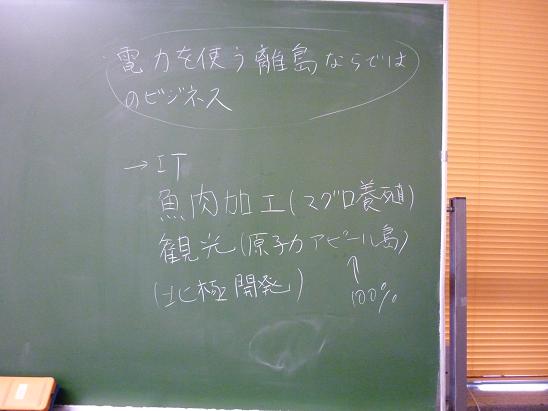 電力を使う離島ならでは
のビジネス
→ IT
魚肉加工(マグロ養殖)
観光(原子力アピール島)
(北極開発)
↑
100%